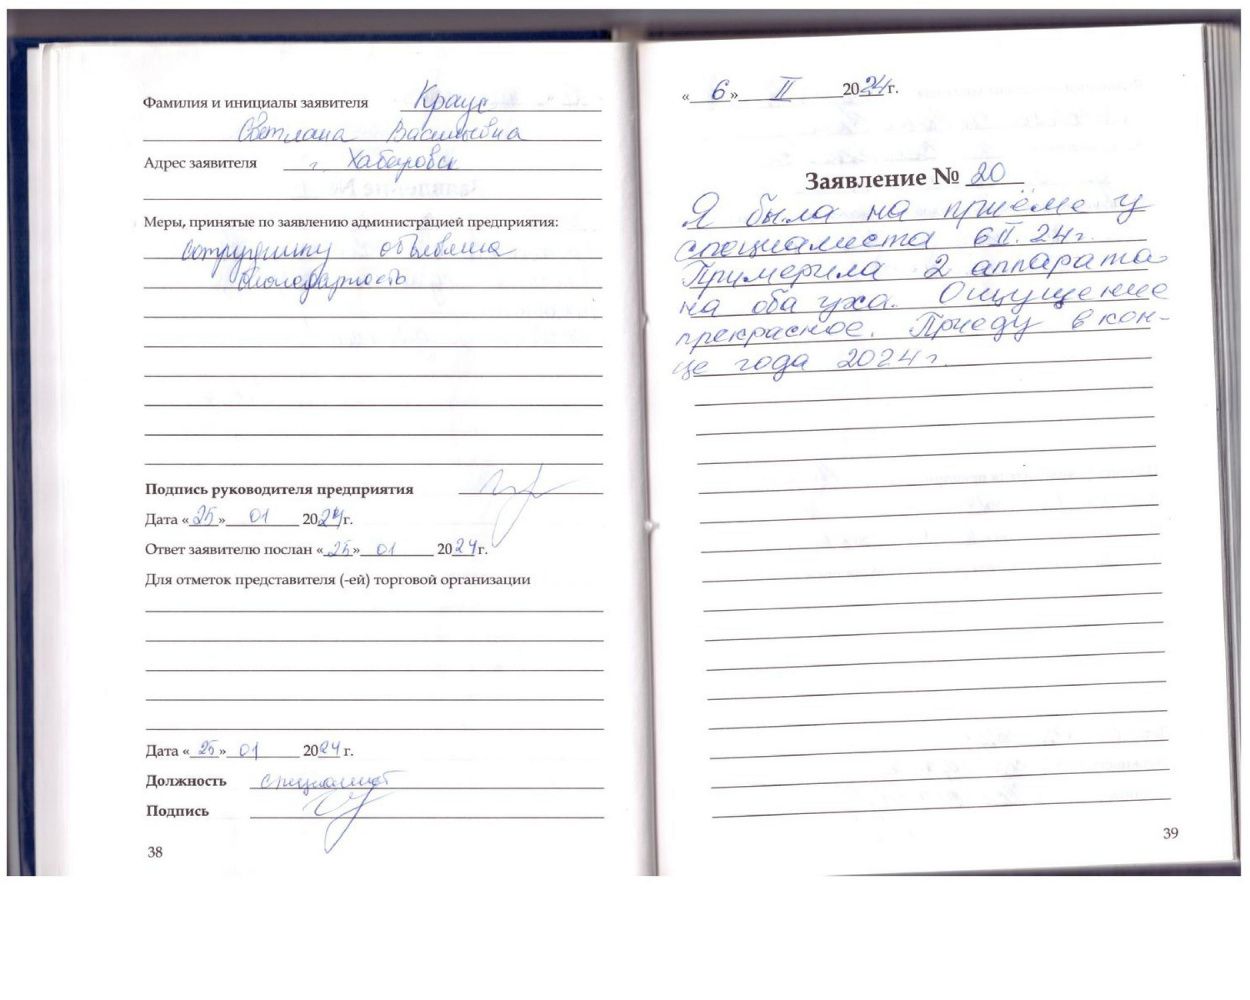 Фамилия и инициалы заявителя Краус
Светлана Васильевна
Адрес заявителя г. Хабаровск
Меры, принятые по заявлению администрацией предприятия:
сотруднику объявлена
благодарность
Подпись руководителя предприятия
Дата «25» 01 2024г.
Ответ заявителю послан «25» 01 2024г.
Для отметок представителя (-ей) торговой организации
Дата «25» 01 2024 г.
Должность специалист
Подпись
38
«6» II 2024г.
Заявление № 20
Я была на приёме у
специалиста 6 II. 24г.
Примерила 2 аппарата
на оба уха. Ощущение
прекрасное. Приеду в кон-
це года 2024г.
39